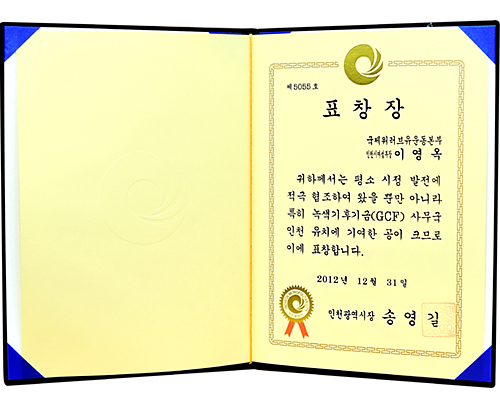 제5055호
표창장
국제위러브유운동본부
이영옥
귀하께서는 평소 시정 발전에
적극 협조하여 왔을 뿐만 아니라
특히 녹색기후기금(GCF) 사무국
인천 유치에 기여한 공이 크므로
이에 표창합니다.
2012년 12월 31일
인천광역시장 송영길